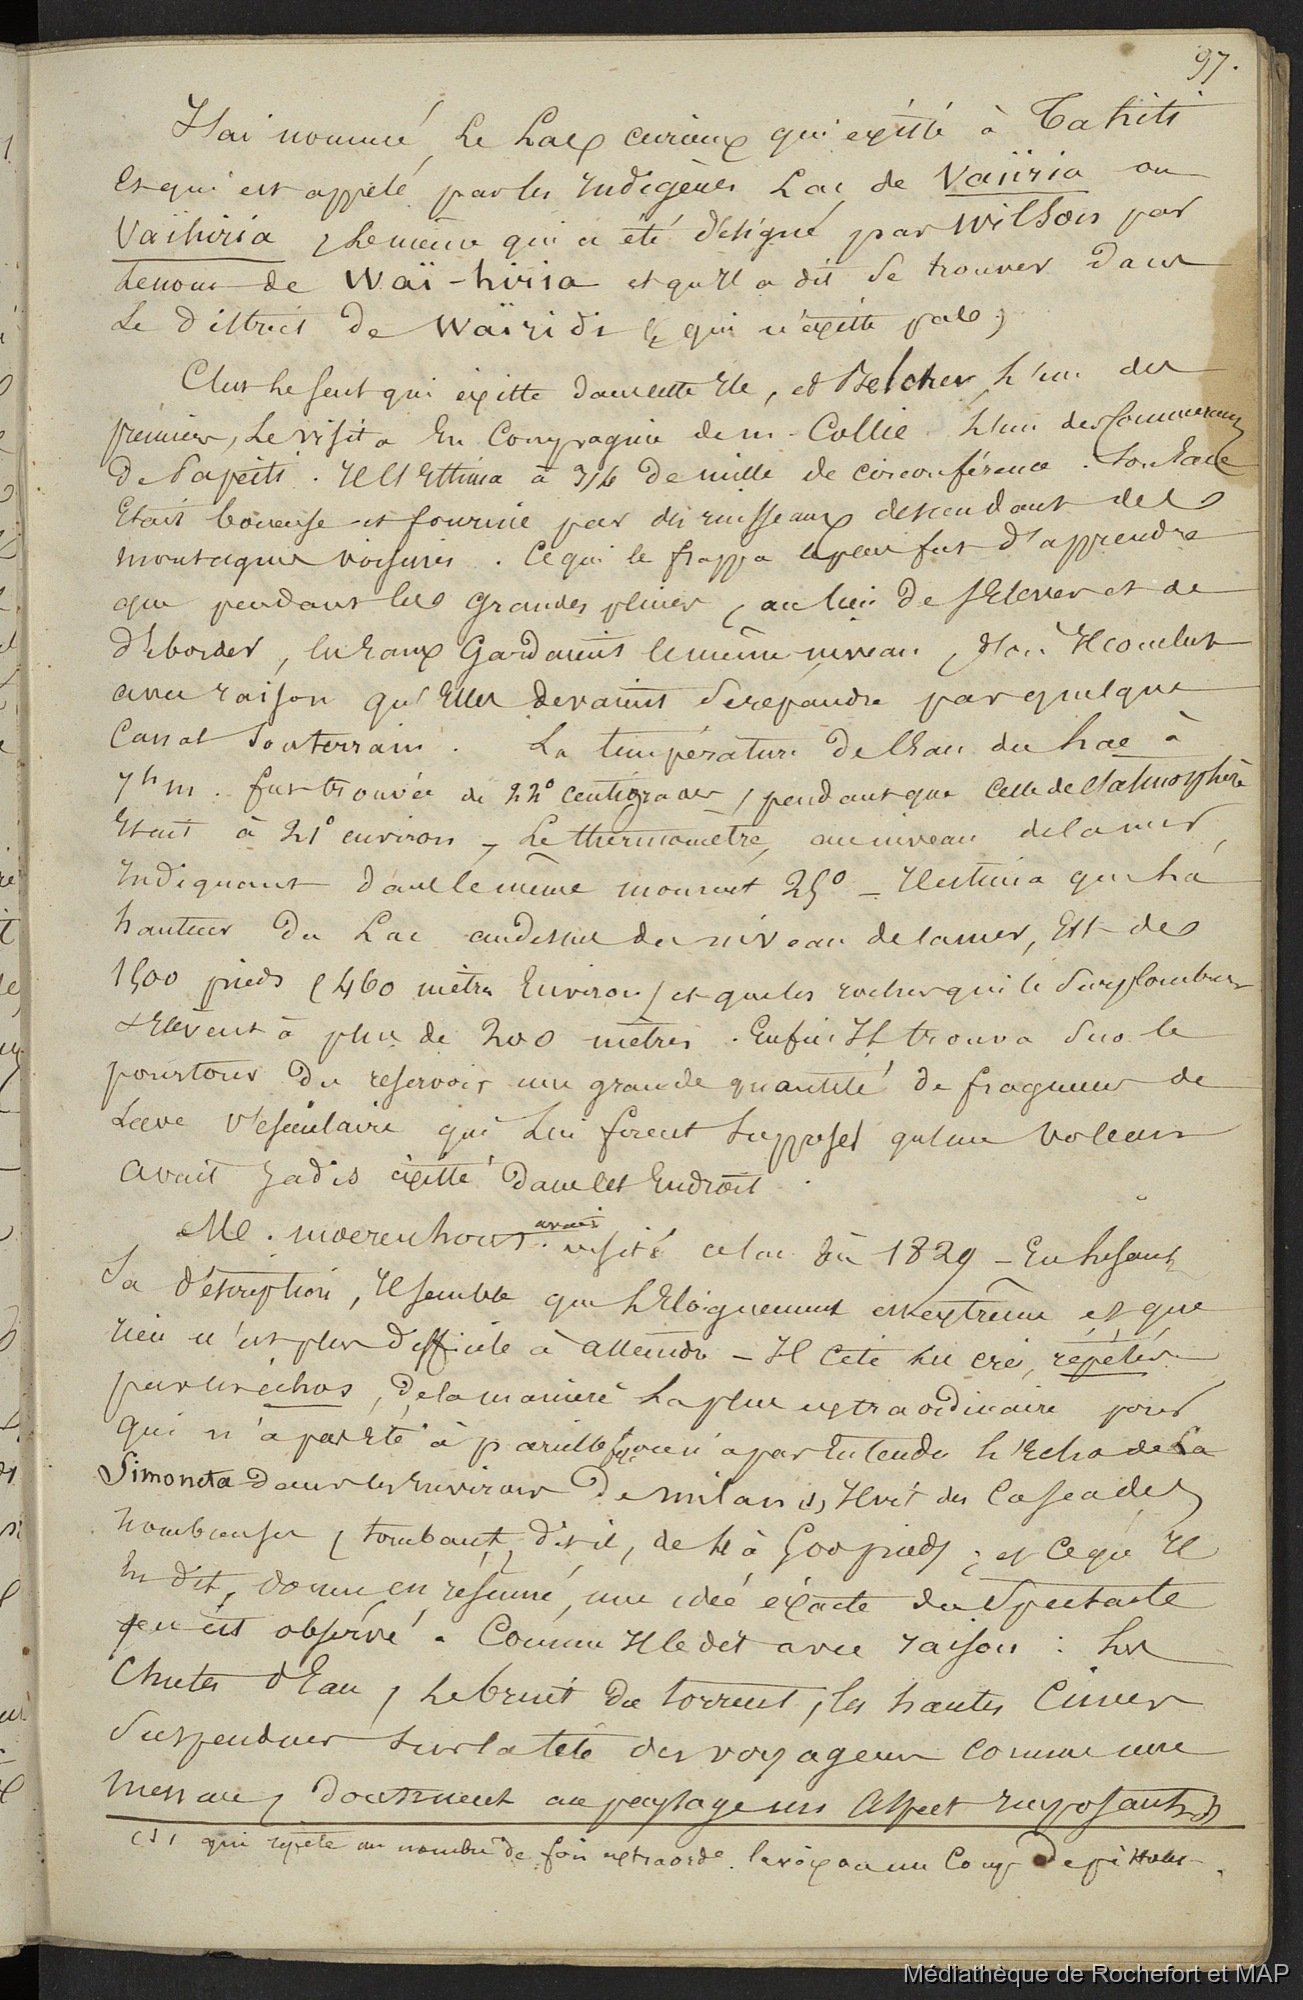 97.
J'ai nommé, le Lac curieux qui existe à Tahiti
et qui est appelé par les indigènes Lac de Vaïiria ou
Vaïhiria, le même qui a été désigné par Wilson par
le nom de Waï-hiria et qu'il a dit se trouver dans
le district de Waïridi (qui n'existe pas)
C'est le seul qui existe dans cette île, et Belcher, l'un des
premiers, le visita en compagnie de M. Collie l'un des commerçans
de Papeiti. Il l'estima à 3/4 de mille de circonférence. Son eau
était boueuse et fournie par des ruisseaux descendant des
montagnes voisines. Ce qui le frappa le plus fut d'apprendre
que pendant les grandes pluies, au lieu de s'élever et de
déborder, les eaux gardaient le même niveau, d'où il conclut
avec raison qu'elles devaient se répandre par quelque
canal souterrain. La température de l'eau du lac à
7h m. fut trouvée de 22° centigrades, pendant que celle de l'atmosphère
était à 21° environ, le thermomètre, au niveau de la mer,
indiquant dans le même moment 25° _ Il estima que la
hauteur du Lac au dessus du niveau de la mer, est de
1500 pieds (460 mètres environ) et que les rochers qui le surplombent
s'élèvent à plus de 200 mètres. Enfin il trouva sur le
pourtour du réservoir une grande quantité de fragmens de
lave vésiculaire qui lui firent supposer qu'un volcan
avait jadis existé dans cet endroit.
M. Moerenhout avait visité ce lac en 1829 _ En lisant
sa description, il semble que l'éloignement est extrême et que
rien n'est plus difficile à atteindre _ Il cite les cris, répétés
par les échos, de la manière la plus extraordinaire pour
qui n'a pas été à pareille ou n'a pas entendu l'écho de la
Simoneta dans les environs de Milan (1), il vit des cascades
nombreuses, tombant, dit-il, de 4 à 500 pieds; et ce qu'il
en dit, donne en résumé, une idée exacte du spectacle
observé. Comme il le dit avec raison : les
chutes d'eau, le bruit du torrent, les hautes cimes
suspendues sur la tête des voyageurs comme une
menace, donnent au paysage un aspect imposant
(1) qui répète un nombre de fois extraorde. la voix ou un coup de pistolet.
Médiathèque de Rochefort et MAP